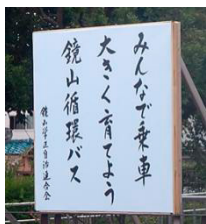 みんなで乗車
大きく育てよう
鏡山循環バス
鏡山学区自治連合会